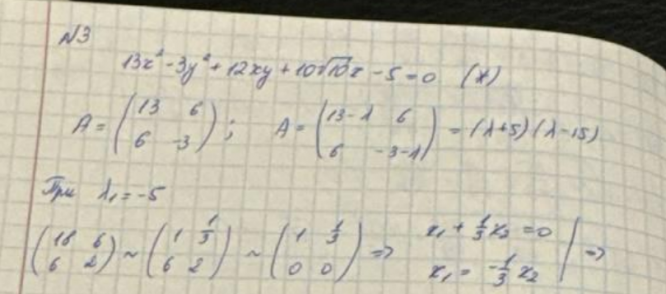 №3
13x² - 3y² + 12xy + 10√10x - 5 = 0 (*)
A = (13 6; 6 -3); A = (13-λ 6; 6 -3-λ) = (λ+5)(λ-15)
При λ₁ = -5
(18 6; 6 2) ~ (1 1/3; 6 2) ~ (1 1/3; 0 0) => x₁ + 1/3 x₂ = 0 | =>
x₁ = -1/3 x₂